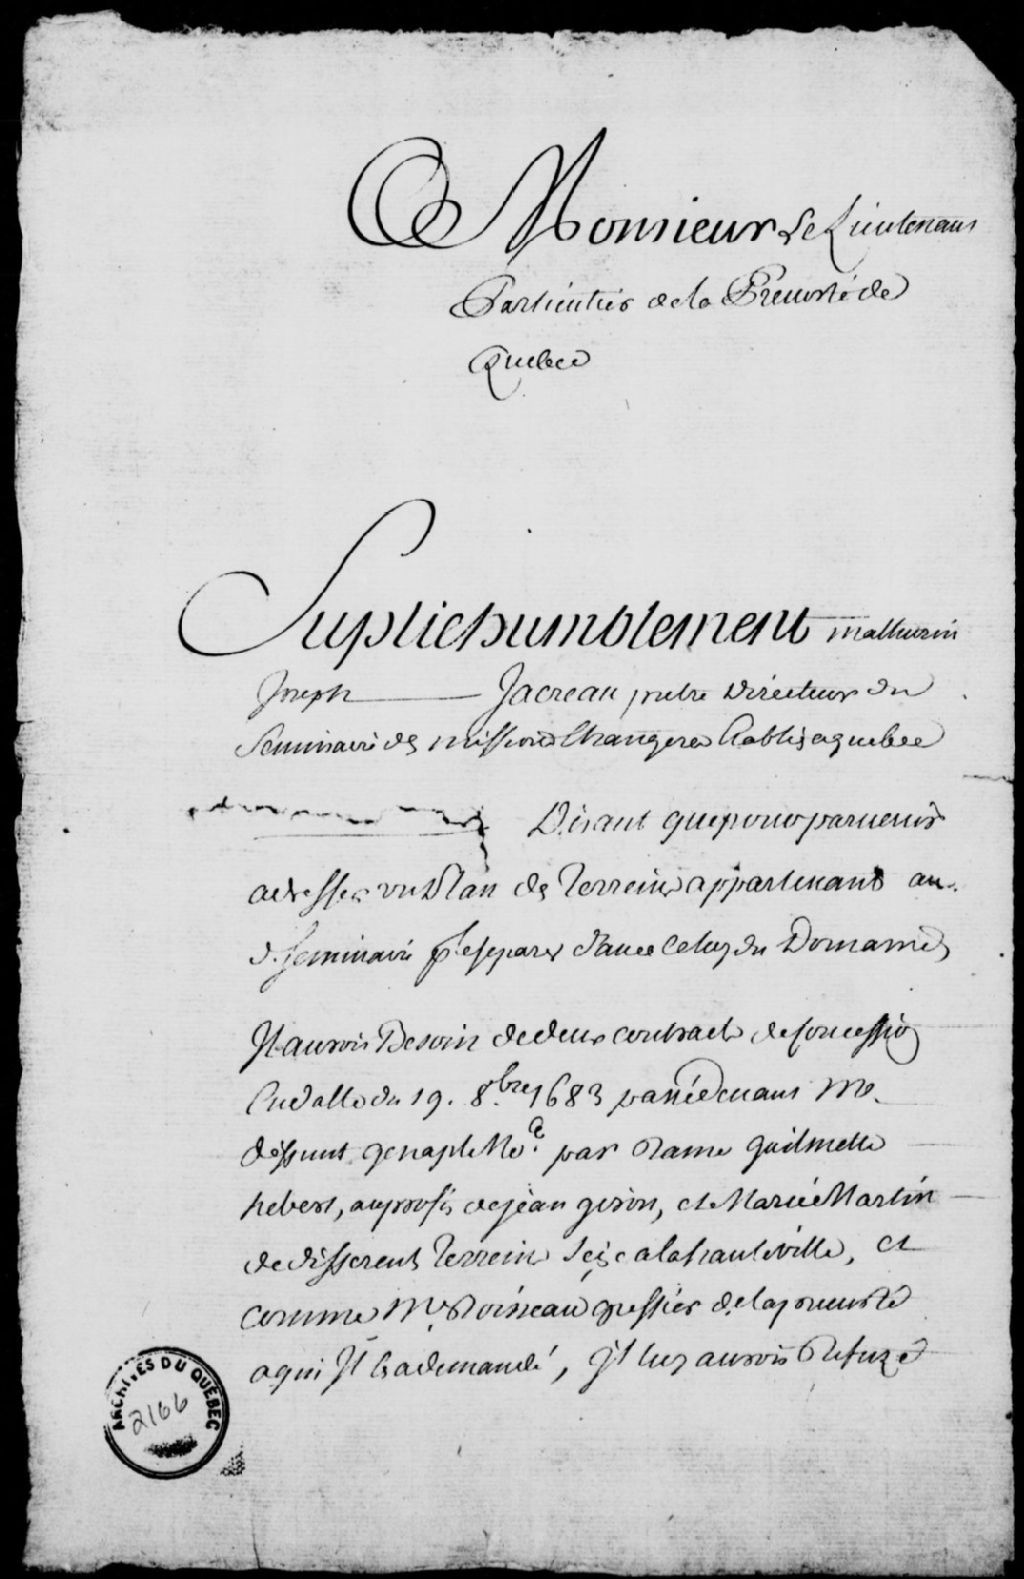 A Monsieur Le Lieutenant
Particulier de la Prevosté de
Quebec
Suplie humblement mathurin
Joseph Jacreau pretre Directeur du
Seminaire des missions Etrangeres Etablis a quebec
Disant que pour parvenir
a dresser un Plan des Terreins appartenant au
d. Seminaire les separer d'avec celuy du Domaine,
Il auroit Besoin de deux contracts de Concession
En datte du 19. 8.bre 1683 passé devant Me.
deffunt genaple No.e par Dame guilmette
hebert, au profit de jean giron, et Marie Martin
de differents Terreins scis a la haute ville, et
comme Mr. Boisseau greffier de la prevosté
a qui Il les a demandé, Il luy auroit Refuzé
ARCHIVES DU QUÉBEC
2166